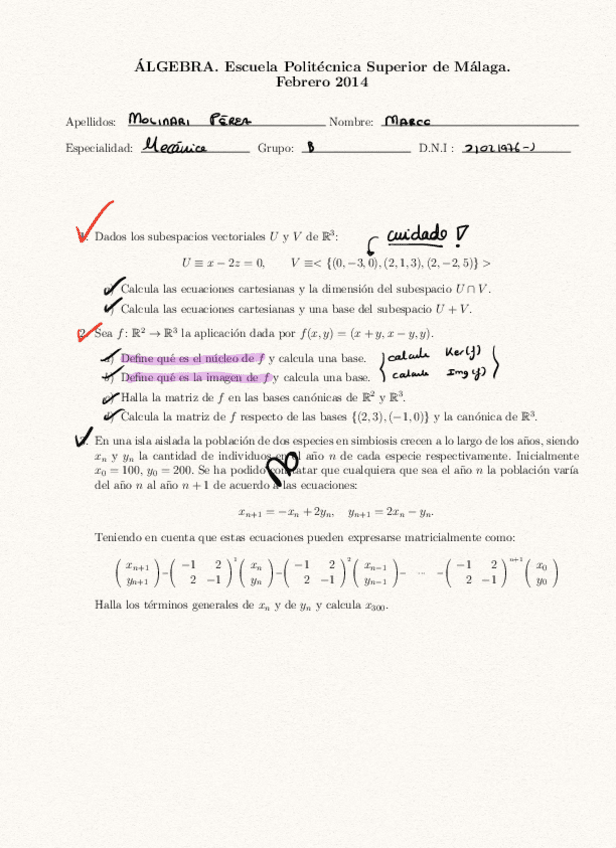 ÁLGEBRA. Escuela Politécnica Superior de Málaga.
Febrero 2014
Apellidos: MOLINARI PÉREZ Nombre: MARCO
Especialidad: Mecánica Grupo: B D.N.I :
cuidado !
1. Dados los subespacios vectoriales U y V de ℝ³:
U ≡ x − 2z = 0, V ≡< {(0, −3, 0), (2, 1, 3), (2, −2, 5)} >
a) Calcula las ecuaciones cartesianas y la dimensión del subespacio U ∩ V.
b) Calcula las ecuaciones cartesianas y una base del subespacio U + V.
2. Sea f: ℝ² → ℝ³ la aplicación dada por f(x, y) = (x + y, x − y, y).
a) Define qué es el núcleo de f y calcula una base. calcula Ker(f)
b) Define qué es la imagen de f y calcula una base. calcula Img(f)
c) Halla la matriz de f en las bases canónicas de ℝ² y ℝ³.
d) Calcula la matriz de f respecto de las bases {(2, 3), (−1, 0)} y la canónica de ℝ³.
3. En una isla aislada la población de dos especies en simbiosis crecen a lo largo de los años, siendo
xₙ y yₙ la cantidad de individuos en el año n de cada especie respectivamente. Inicialmente
x₀ = 100, y₀ = 200. Se ha podido constatar que cualquiera que sea el año n la población varía
del año n al año n + 1 de acuerdo a las ecuaciones:
NO
xₙ₊₁ = −xₙ + 2yₙ, yₙ₊₁ = 2xₙ − yₙ.
Teniendo en cuenta que estas ecuaciones pueden expresarse matricialmente como:
( xₙ₊₁ ) = ( −1 2 )¹ ( xₙ ) = ( −1 2 )² ( xₙ₋₁ ) = ... = ( −1 2 )ⁿ⁺¹ ( x₀ )
( yₙ₊₁ ) ( 2 −1 ) ( yₙ ) ( 2 −1 ) ( yₙ₋₁ ) ( 2 −1 ) ( y₀ )
Halla los términos generales de xₙ y de yₙ y calcula x₃₀₀.